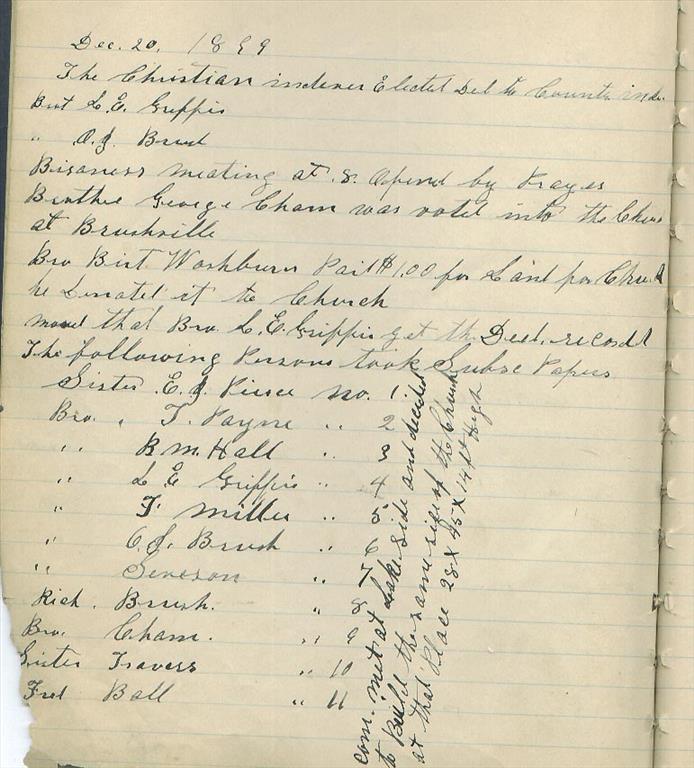 Dec. 20, 1899
The Christian indever Elected Del to County
L. E. Griffis
" O. J. Brush
Bisaness meating at 8. Opend by Prayes
George Cham was voted into the
at Brushville
Bro Birt Washburn Paid $1.00 for Land for Church
he Donated it to Church
moved that Bro. L. E. Griffis get the Deed record
The following Persons took Subsc Papers
Sister E. J. Pierce No. 1
Bro. " T. Payne " 2
" R. M. Hall " 3
" L E Griffis " 4
" F. Miller " 5
" O. J. Brush " 6
" Severson " 7
Rich. Brush. " 8
Bro. Cham. " 9
Sister Travers " 10
Fred Ball " 11
com. met at Lake Side and decided
to Build the same size of the Church
at that Place 28 X 45 X 14 ft High